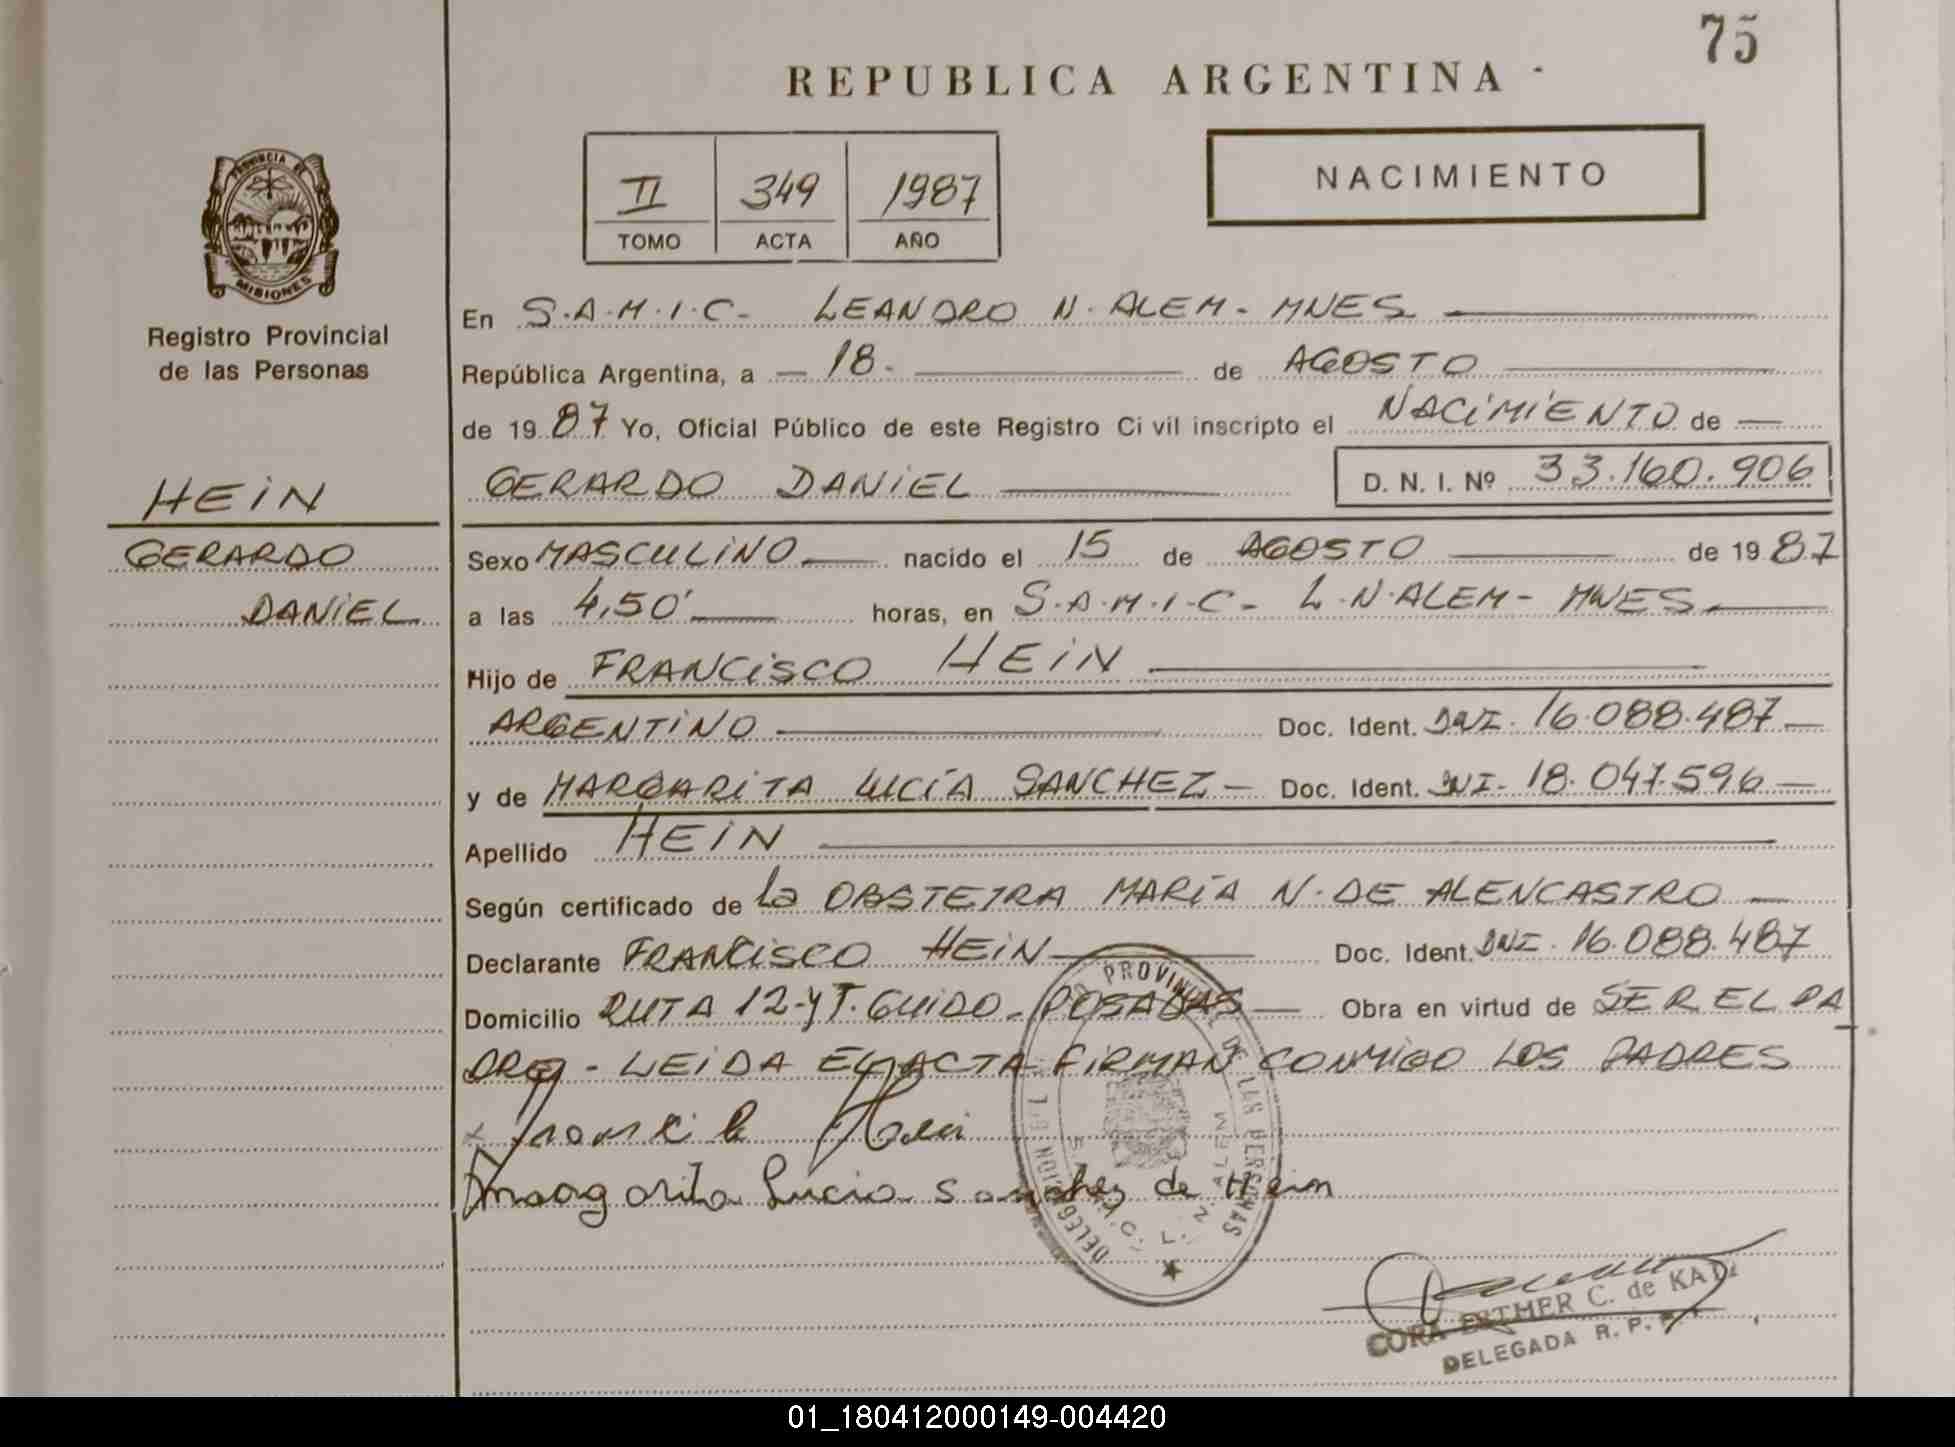 75
REPUBLICA ARGENTINA
PROVINCIA DE
MISIONES
Registro Provincial
de las Personas
II 349 1987
TOMO ACTA AÑO
NACIMIENTO
En S.A.M.I.C- LEANDRO N. ALEM- MNES
República Argentina, a 18. de AGOSTO
de 19 87 Yo, Oficial Público de este Registro Ci vil inscripto el NACIMIENTO de
HEIN
GERARDO DANIEL D. N. I. Nº 33.160.906
GERARDO
DANIEL
Sexo MASCULINO nacido el 15 de AGOSTO de 19 87
a las 4,50' horas, en S.A.M.I.C- L.N.ALEM- MNES
Hijo de FRANCISCO HEIN
ARGENTINO Doc. Ident. DNI. 16.088.487
y de MARGARITA LUCÍA SANCHEZ Doc. Ident. DNI- 18.047.596
Apellido HEIN
Según certificado de la OBSTETRA MARÍA N. DE ALENCASTRO
Declarante FRANCISCO HEIN Doc. Ident. DNI. 16.088.487
Domicilio RUTA 12-y T. GUIDO-POSADAS Obra en virtud de SER EL PA
DRE- LEIDA EL ACTA FIRMAN CONMIGO LOS PADRES
Hein
Margarita Lucia Sanchez de Hein
PROVINCIAL DE LAS PERSONAS
DELEGACION
S.A.M.I.C. L. N. ALEM
CORA ESTHER C. de KATZ
DELEGADA R. P. P.
01_180412000149-004420